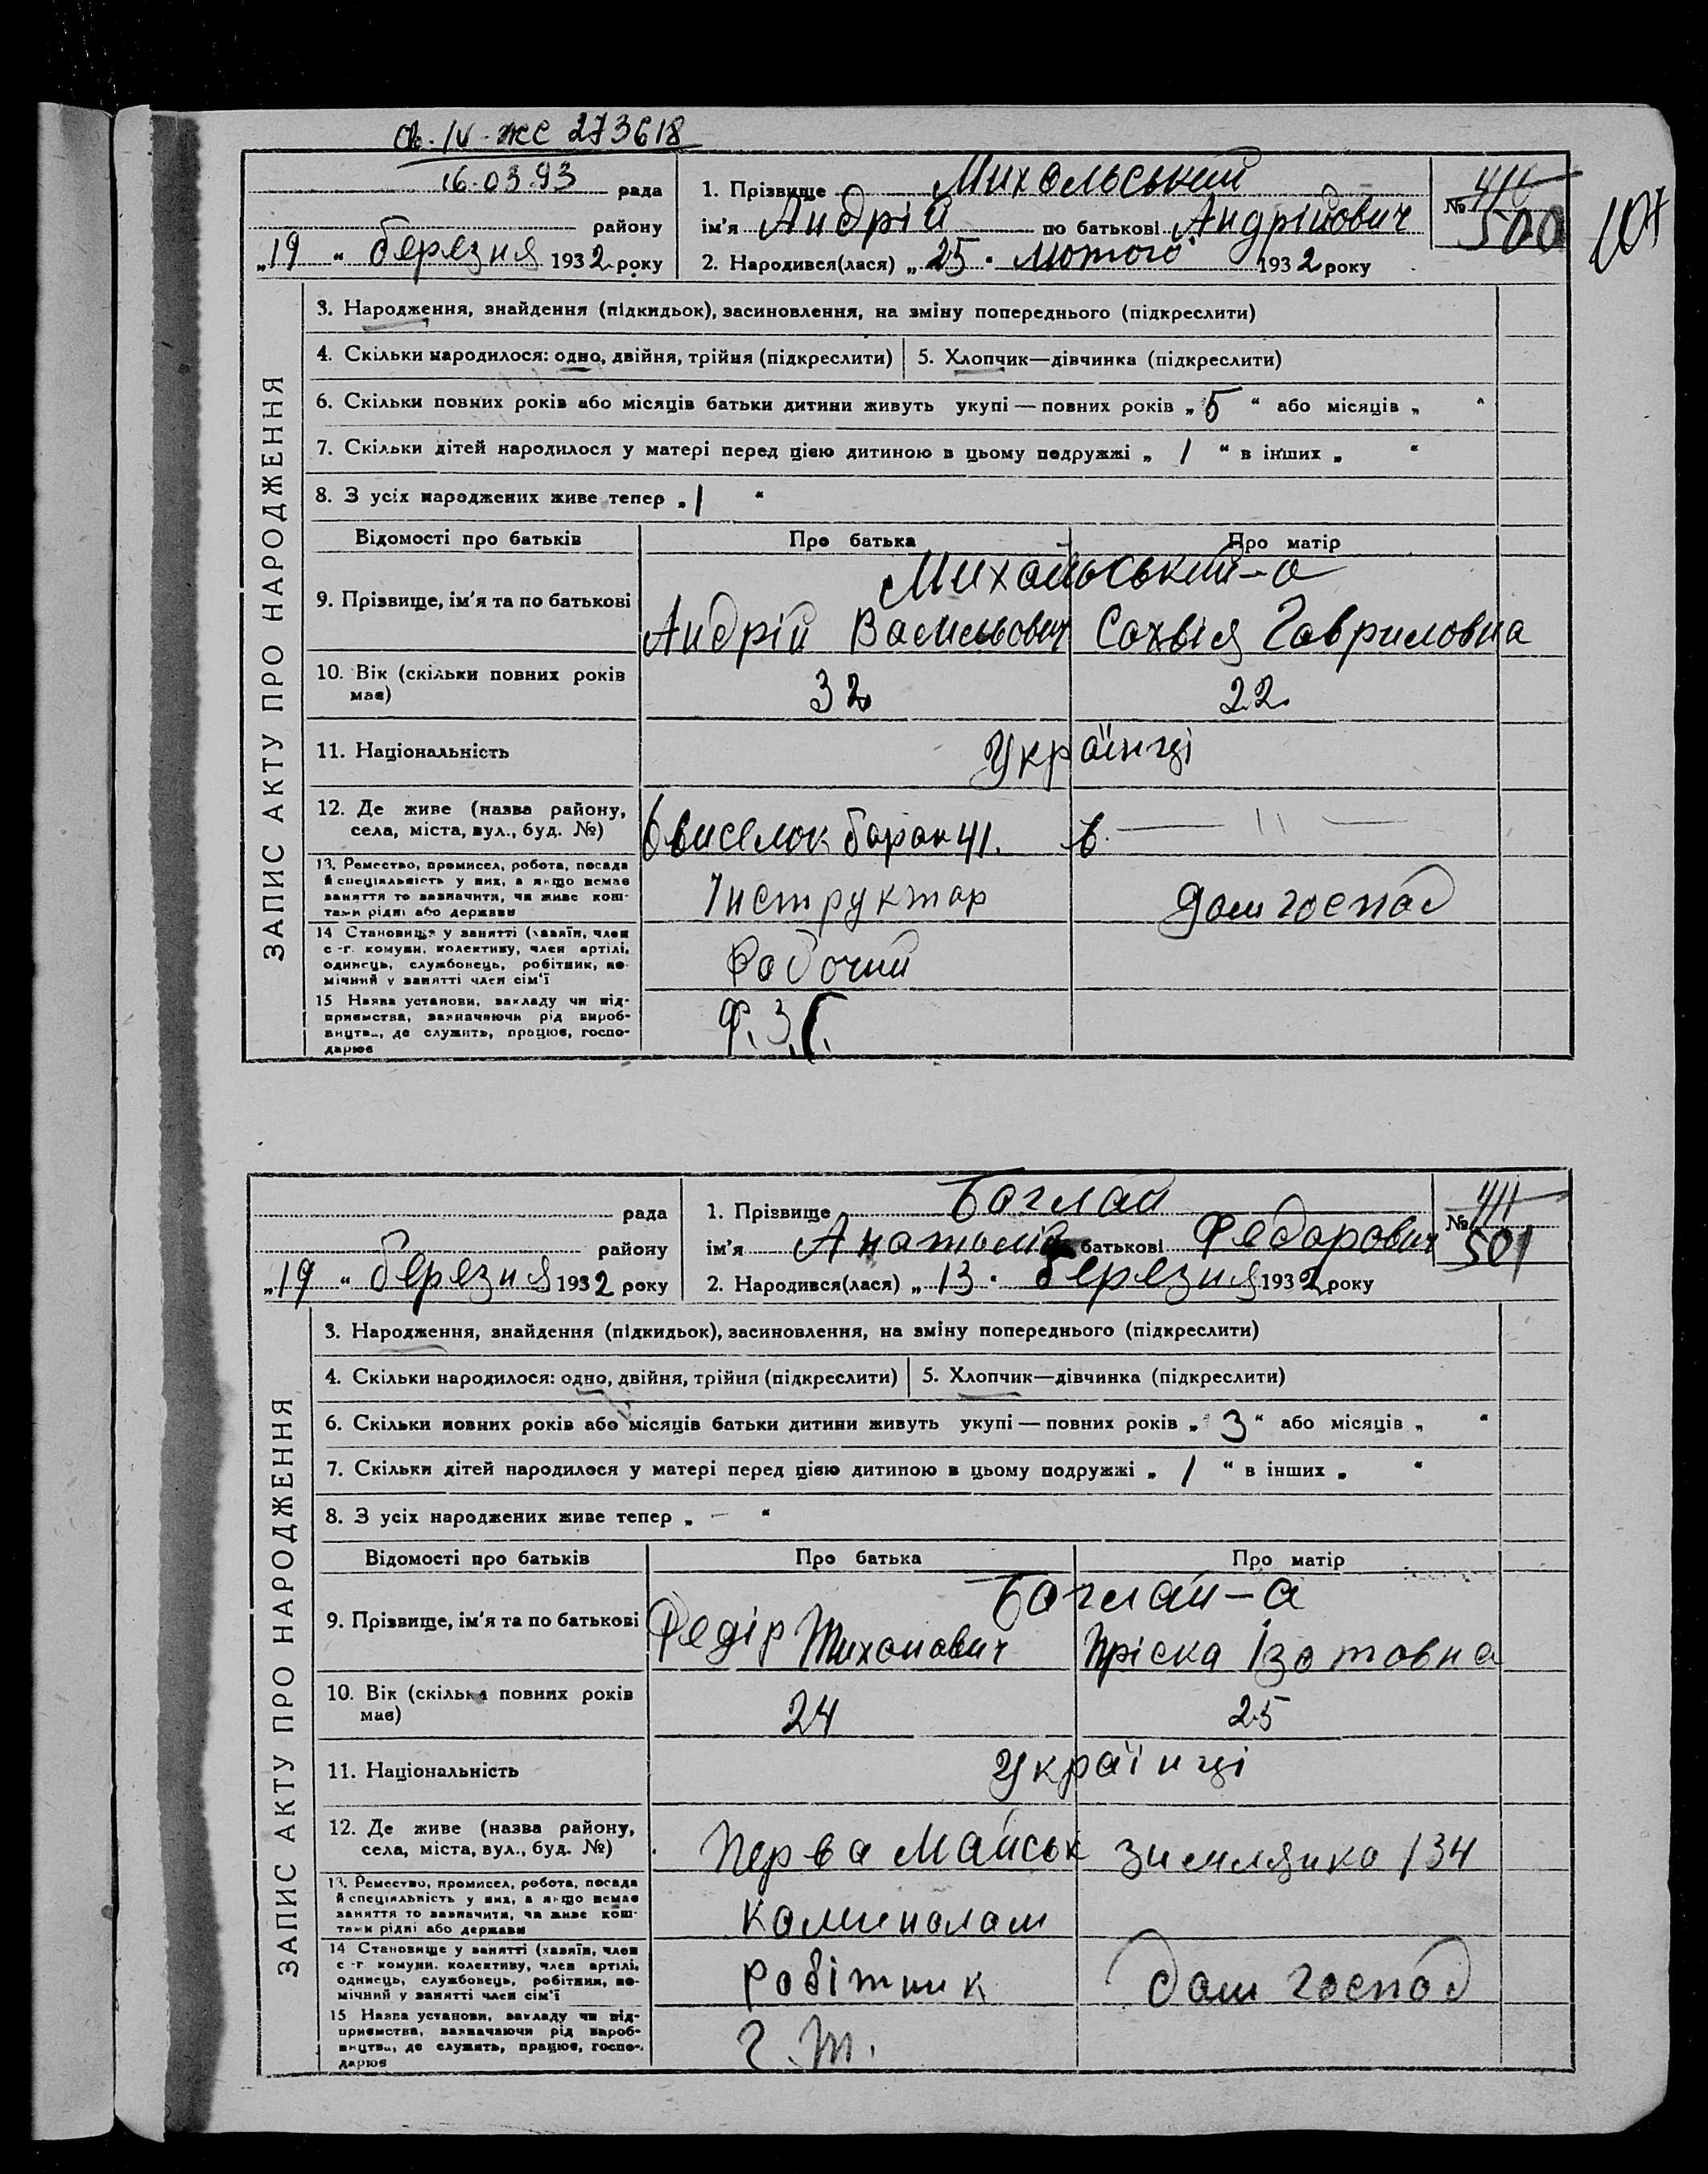 св. IV-ЖС 273618
16.03.93 рада
району
„19 “ березня 1932 року
1. Прізвище Михальський
ім'я Андрій по батькові Андрійович
2. Народився(лася) „ 25 “ лютого 1932 року
№ 500
107
ЗАПИС АКТУ ПРО НАРОДЖЕННЯ
3. Народження, знайдення (підкидьок), засиновлення, на зміну попереднього (підкреслити)
4. Скільки народилося: одно, двійня, трійня (підкреслити) 5. Хлопчик—дівчинка (підкреслити)
6. Скільки повних років або місяців батьки дитини живуть укупі — повних років „ 5 “ або місяців „ “
7. Скільки дітей народилося у матері перед цією дитиною в цьому подружжі „ 1 “ в інших „ “
8. З усіх народжених живе тепер „ 1 “
Відомості про батьків Про батька Про матір
Михальський-а
9. Прізвище, ім'я та по батькові
Андрій Васильович Сохвія Гавриловна
10. Вік (скільки повних років
має)
32 22
11. Національність Українці
12. Де живе (назва району,
села, міста, вул., буд. №)
виселок барак 41. в. — 11 —
13. Ремество, промисел, робота, посада
й спеціяльність у них, а якщо немає
заняття то зазначити, чи живе кош-
тами рідні або держави
Інструктор Дом господ
14 Становище у занятті (хазяїн, член
с.-г. комуни, колективу, член артілі,
одинець, службовець, робітник, по-
мічний у занятті член сім'ї
Рабочий
15 Назва установи, закладу чи під-
приємства, зазначаючи рід вироб-
ництва, де служить, працює, госпо-
дарює
рада
району
„19 “ березня 1932 року
1. Прізвище Баглай
ім'я Анатолій батькові Федорович
2. Народився(лася) „ 13 “ березня 1932 року
№ 411
501
ЗАПИС АКТУ ПРО НАРОДЖЕННЯ
3. Народження, знайдення (підкидьок), засиновлення, на зміну попереднього (підкреслити)
4. Скільки народилося: одно, двійня, трійня (підкреслити) 5. Хлопчик—дівчинка (підкреслити)
6. Скільки повних років або місяців батьки дитини живуть укупі — повних років „ 3 “ або місяців „ “
7. Скільки дітей народилося у матері перед цією дитиною в цьому подружжі „ 1 “ в інших „ “
8. З усіх народжених живе тепер „ — “
Відомості про батьків Про батька Про матір
Баглай-а
9. Прізвище, ім'я та по батькові
Федір Тихонович Пріска Ізотовна
10. Вік (скільки повних років
має)
24 25
11. Національність Українці
12. Де живе (назва району,
села, міста, вул., буд. №)
Перва Майськ Зимлянка 134
13. Ремество, промисел, робота, посада
й спеціяльність у них, а якщо немає
заняття то зазначити, чи живе кош-
тами рідні або держави
каминалом
14 Становище у занятті (хазяїн, член
с.-г. комуни, колективу, член артілі,
одинець, службовець, робітник, по-
мічний у занятті член сім'ї
робітник дом господ
15 Назва установи, закладу чи під-
приємства, зазначаючи рід вироб-
ництва, де служить, працює, госпо-
дарює
Г.Т.